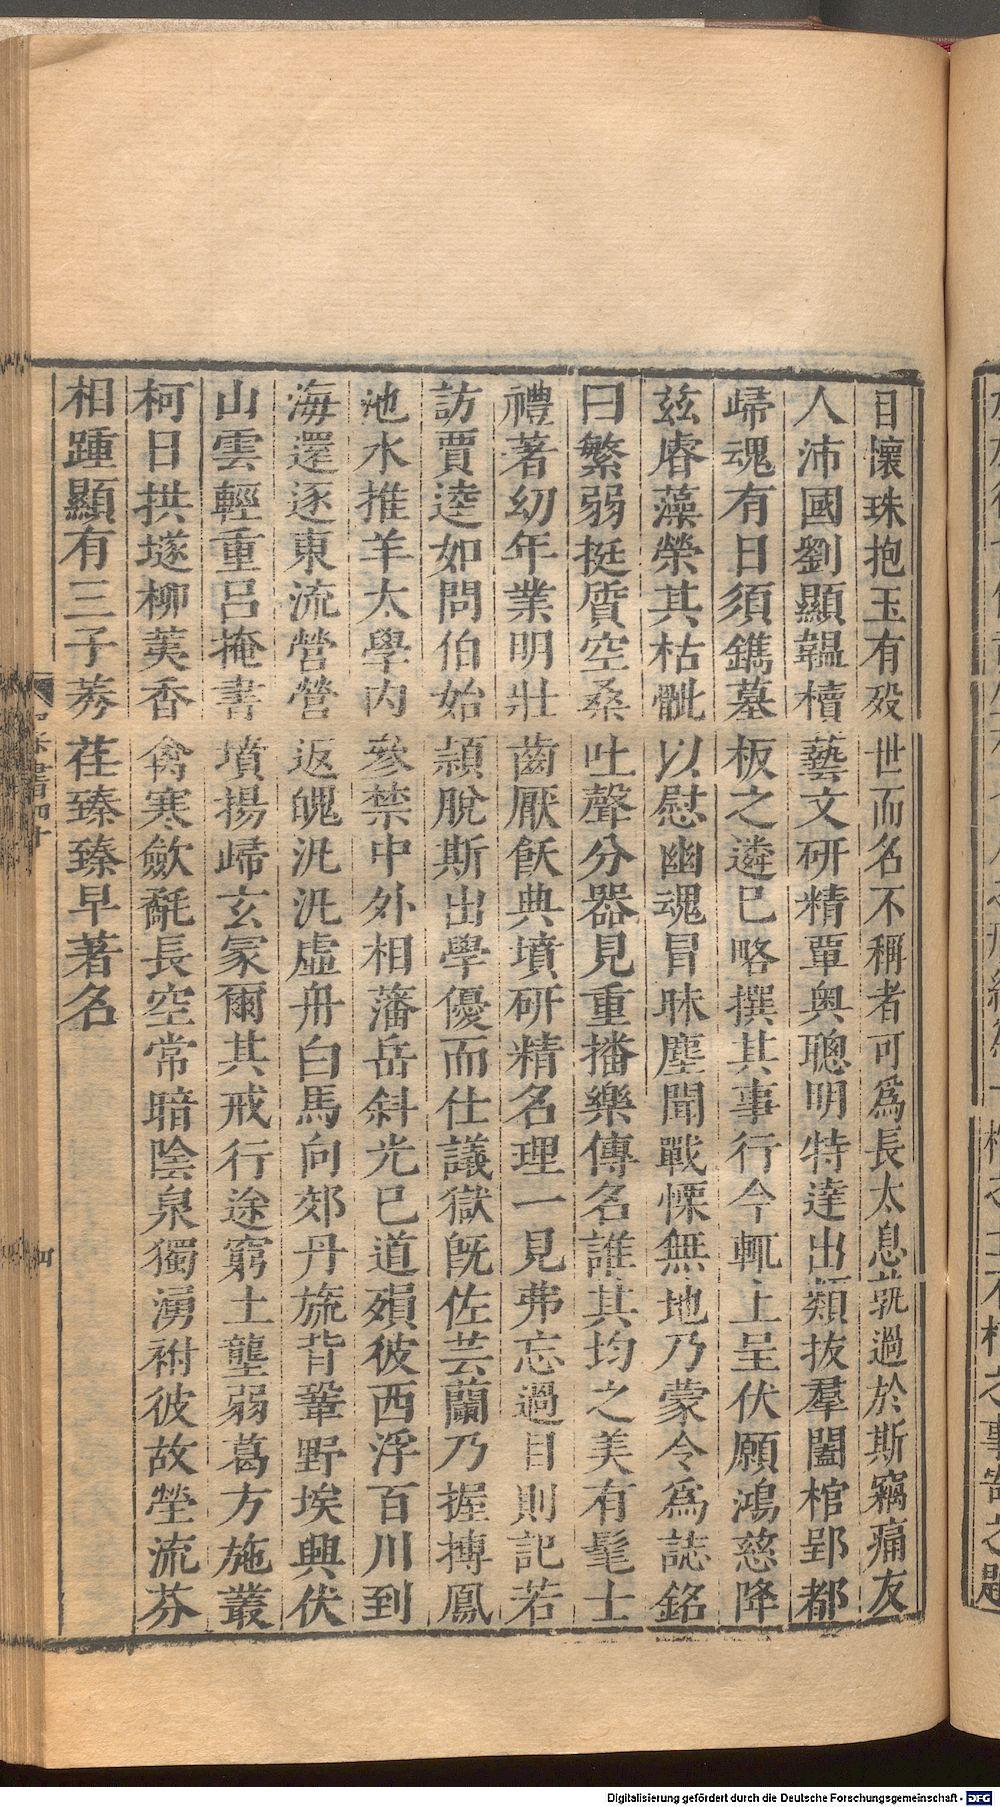 日懷珠抱玉有殁世而名不稱者可爲長太息孰過於斯竊痛友
人沛國劉顯韞櫝藝文研精覃奥聰明特達出類拔羣闔棺郢都
歸魂有日須鐫墓板之遴已略撰其事行今輒上呈伏願鴻慈降
兹睿藻榮其枯骴以慰幽魂冒昧塵聞戰慄無地乃蒙令爲誌銘
曰繁弱挺質空桑吐聲分器見重播樂傳名誰其均之美有髦士
禮著幼年業明壯齒厭飫典墳研精名理一見弗忘過目則記若
訪賈逵如問伯始頴脫斯出學優而仕議獄旣佐芸蘭乃握搏鳳
池水推羊太學内參禁中外相藩岳斜光已道殞彼西浮百川到
海還逐東流營營返魄汎汎虛舟白馬向郊丹旐背鞏野埃興伏
山雲輕重呂掩書墳揚歸玄冢爾其戒行途窮土壟弱葛方施叢
柯日拱墬柳荑香禽寒歛氄長空常暗陰泉獨湧祔彼故塋流芬
相踵顯有三子莠荏臻臻早著名
Digitalisierung gefördert durch die Deutsche Forschungsgemeinschaft - DFG